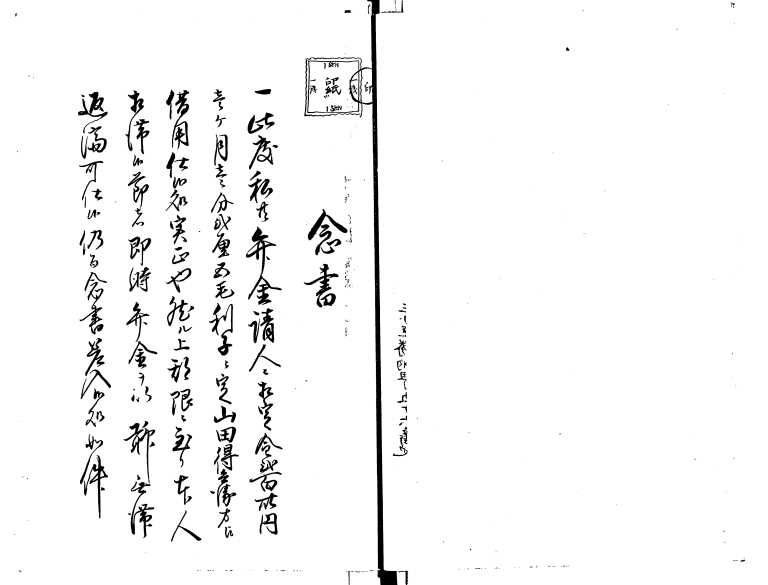 1 SEN
紙
1 SEN
念書
一 此度私共弁金請人ニ相定金弐百
壱ヶ月壱分弐厘五毛利子ニ定山田得
借用仕候処実正也然ル上ハ期限ニ至リ本人
相滞候節者即時弁金ヲ以 無滞
返済可仕候仍而念書差入候処如件